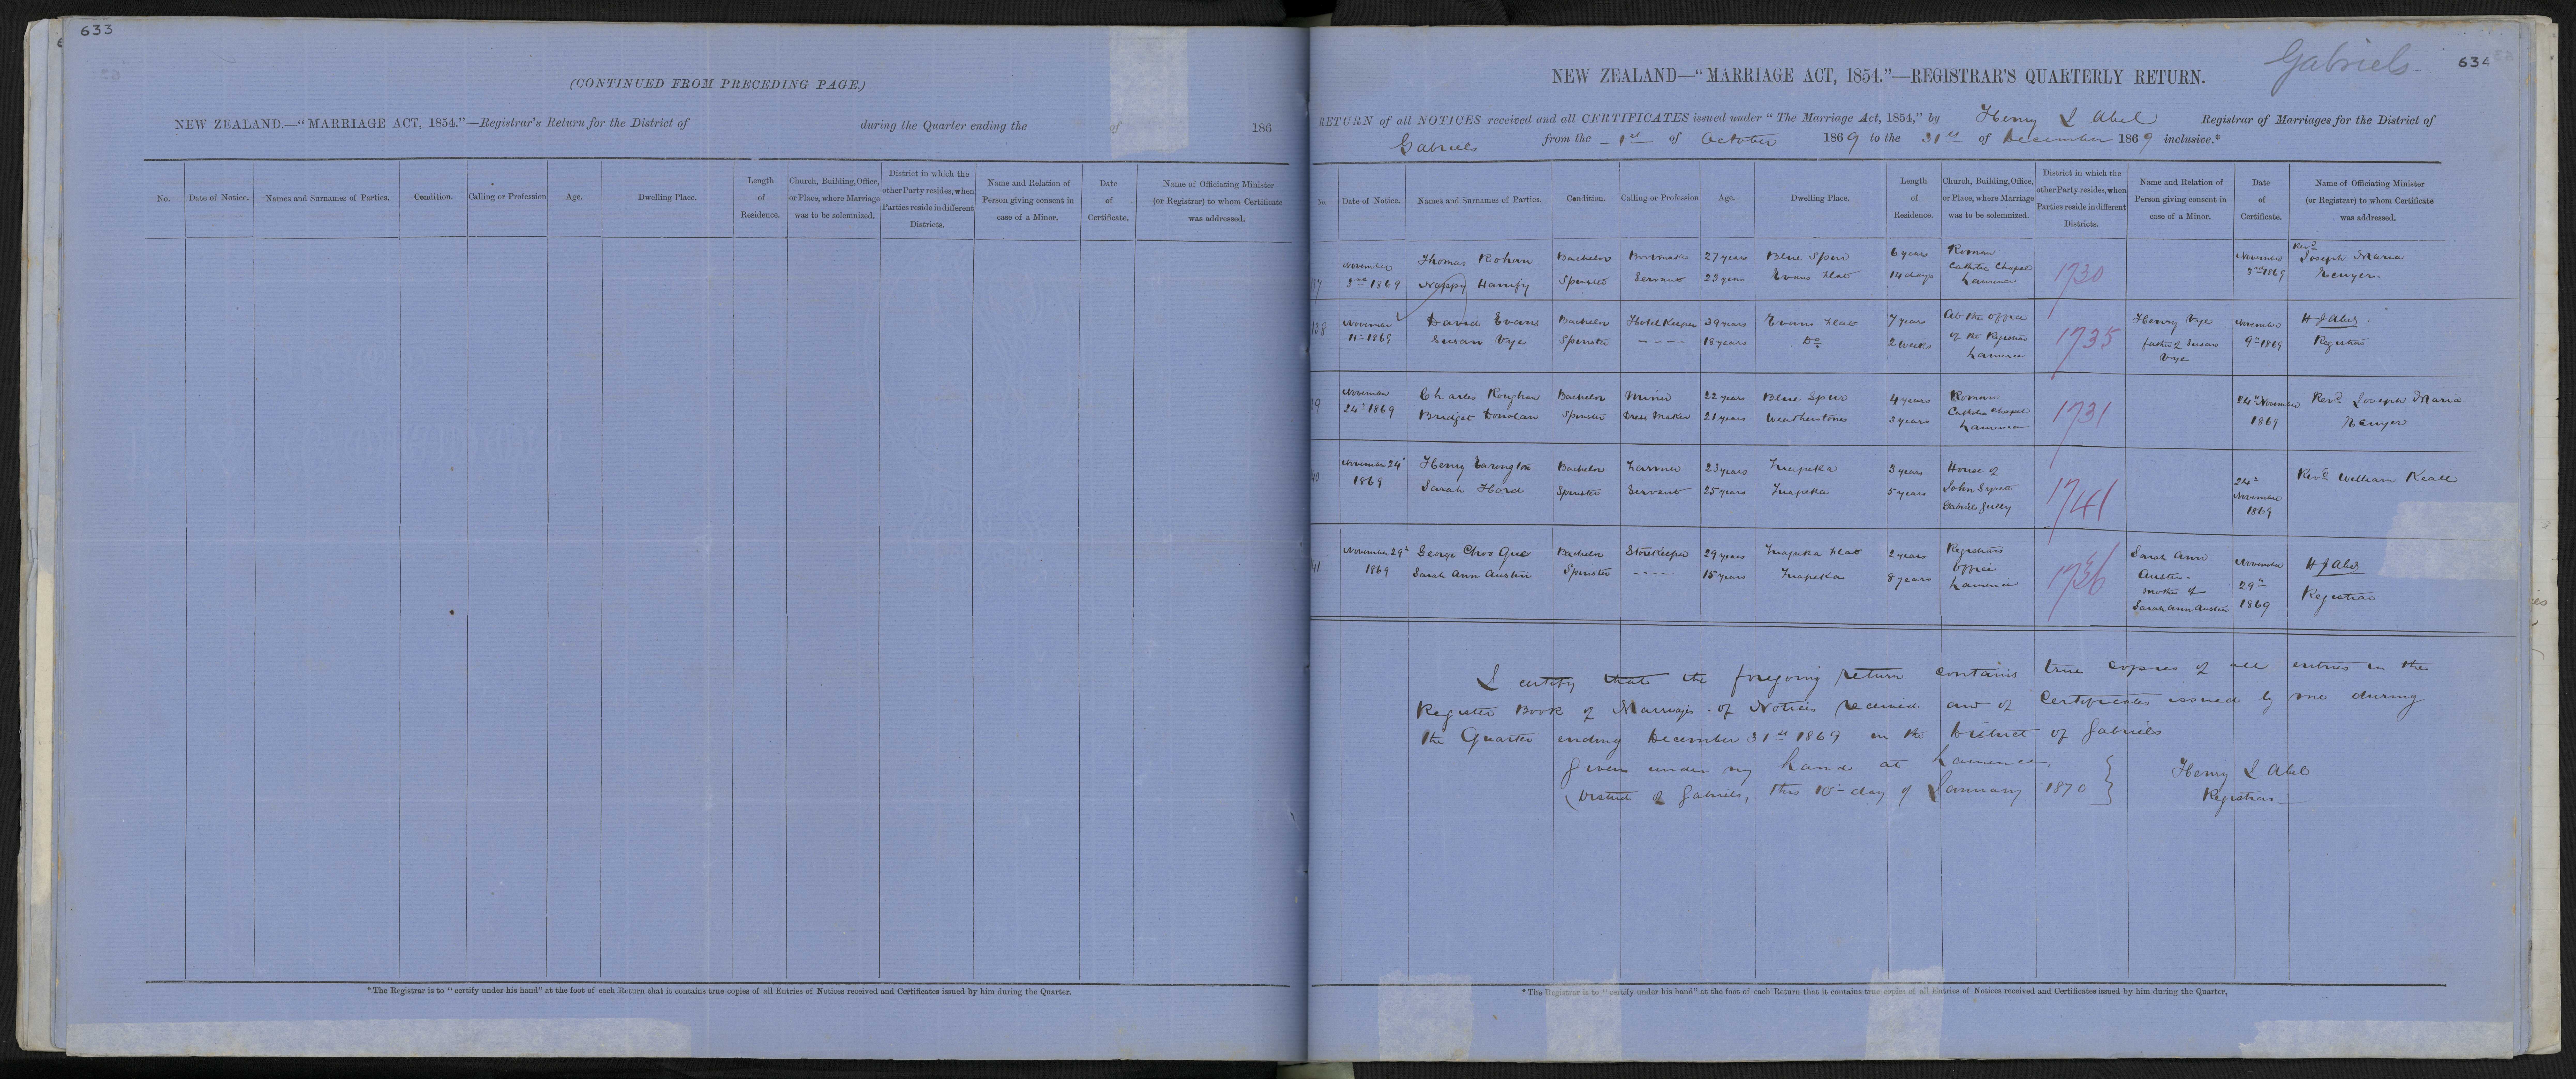 633
(CONTINUED FROM PRECEDING PAGE.)
NEW ZEALAND.—“MARRIAGE ACT, 1854.”—Registrar's Return for the District of during the Quarter ending the of 186
No. Date of Notice. Names and Surnames of Parties. Condition. Calling or Profession Age. Dwelling Place. Length of Residence. Church, Building, Office, or Place, where Marriage was to be solemnized. District in which the other Party resides, when Parties reside in different Districts. Name and Relation of Person giving consent in case of a Minor. Date of Certificate. Name of Officiating Minister (or Registrar) to whom Certificate was addressed.
*The Registrar is to “certify under his hand” at the foot of each Return that it contains true copies of all Entries of Notices received and Certificates issued by him during the Quarter.
Gabriels
634
NEW ZEALAND—“MARRIAGE ACT, 1854.”—REGISTRAR'S QUARTERLY RETURN.
RETURN of all NOTICES received and all CERTIFICATES issued under “The Marriage Act, 1854,” by Henry J Abel Registrar of Marriages for the District of
Gabriels from the 1st of October 1869 to the 31st of December 1869 inclusive.*
No. Date of Notice. Names and Surnames of Parties. Condition. Calling or Profession Age. Dwelling Place. Length of Residence. Church, Building, Office, or Place, where Marriage was to be solemnized. District in which the other Party resides, when Parties reside in different Districts. Name and Relation of Person giving consent in case of a Minor. Date of Certificate. Name of Officiating Minister (or Registrar) to whom Certificate was addressed.
37 November 3rd 1869 Thomas Bohan Bachelor Bootmaker 27 years Blue Spur 6 years Roman Catholic Chapel Lawrence 1730 November 3rd 1869 Revd Joseph Maria
Nappy Spinster Servant 23 years Evans Flat 14 days
138 November 11th 1869 David Evans Bachelor Hotel Keeper 39 years Evans Flat 7 years At the office of the Registrar Lawrence 1735 Henry Vye father of Susan Vye November 9th 1869 H J Abel Registrar
Susan Vye Spinster ---- 18 years Do 2 weeks
39 November 24th 1869 Charles Roughan Bachelor Miner 22 years Blue Spur 4 years Roman Catholic Chapel Lawrence 1731 24th November 1869 Revd Joseph Maria
Bridget Donolan Spinster Dress Maker 21 years Weatherstone 3 years
40 November 24th 1869 Henry Bachelor Farmer 23 years Tuapeka 3 years House of John Gabriels Gully 1741 24th November 1869 Revd William Keall
Sarah Hord Spinster Servant 25 years Tuapeka 5 years
41 November 29th 1869 George Choo Quo Bachelor Storekeeper 29 years Tuapeka Flat 2 years Registrars Office Lawrence 1736 Sarah Ann Austin mother of Sarah Ann Austin November 29th 1869 H J Abel Registrar
Sarah Ann Austin Spinster ---- 15 years Tuapeka 8 years
I certify that the foregoing return contains true copies of all entries in the
Register Book of Marriages of Notices received and of Certificates issued by me during
the Quarter ending December 31st 1869 in the District of Gabriels
Given under my hand at Lawrence,
District of Gabriels, this 10th day of January 1870
Henry J Abel
Registrar
*The Registrar is to “certify under his hand” at the foot of each Return that it contains true copies of all Entries of Notices received and Certificates issued by him during the Quarter.